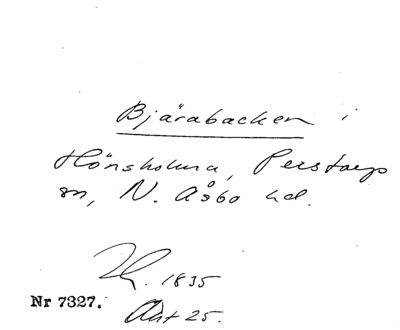 Bjärabacken i
Hönsholma, Perstorps
sn, N. Åsbo hd.
1835
Nr 7327.
Akt 25.